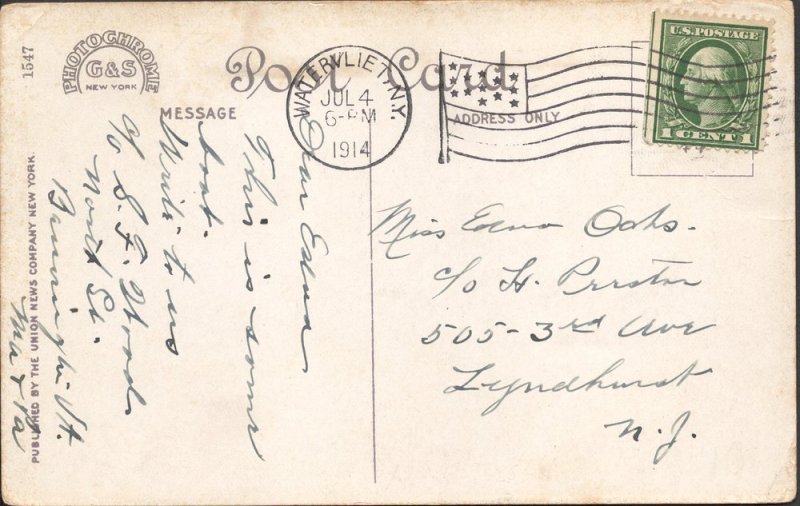 1547
PHOTOCHROME
G&S
NEW YORK
Post Card
MESSAGE
ADDRESS ONLY
WATERVLIET, N.Y.
JUL 4
6-PM
1914
U.S. POSTAGE
1 CENT 1
Dear Edna
This is some
boat.
Write to us
℅ S. F. Wood
North St.
Bennington Vt.
Ma & Pa
Miss Edna Oaks.
c/o H. Preston
505 - 3rd Ave
Lyndhurst
N. J.
PUBLISHED BY THE UNION NEWS COMPANY NEW YORK.